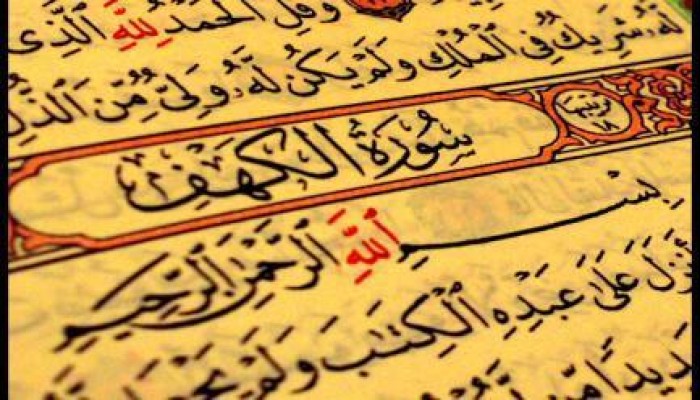 وَقُلِ ٱلْحَمْدُ لِلَّهِ ٱلَّذِى
لَّهُۥ شَرِيكٌ فِى ٱلْمُلْكِ وَلَمْ يَكُن لَّهُۥ وَلِىٌّ مِّنَ ٱلذُّلِّ
سُورَةُ الكَهْفِ ترتيبها ١٨
بِسْمِ ٱللَّهِ ٱلرَّحْمَٰنِ ٱلرَّحِيمِ
أَنزَلَ عَلَىٰ عَبْدِهِ ٱلْكِتَٰبَ وَلَمْ يَجْعَل